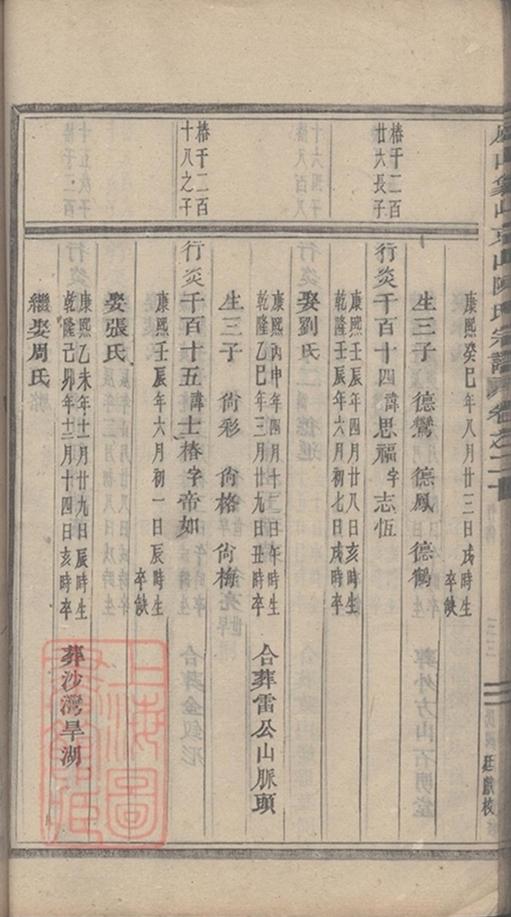 陳氏宗譜
卷之二十
廷獻校
康熙癸巳年八月廿三日戌時生
卒缺
生三子 德鸞 德鳳 德鶴
椿千二百
廿六長子
行炎千百十四諱思福字志恆
康熙壬辰年四月廿八日亥時生
乾隆壬辰年六月初七日戌時卒
娶劉氏
康熙丙申年四月十二日午時生
乾隆乙巳年三月廿九日丑時卒
合葬雷公山脈頭
生三子 尙彩 尙格 尙梅
椿千二百
十八之子
行炎千百十五諱士椿字帝如
康熙壬辰年六月初一日辰時生
卒缺
娶張氏
康熙乙未年十一月廿九日辰時生
乾隆己卯年十二月十四日亥時卒
葬沙灣旱湖
繼娶周氏
上海圖書館藏